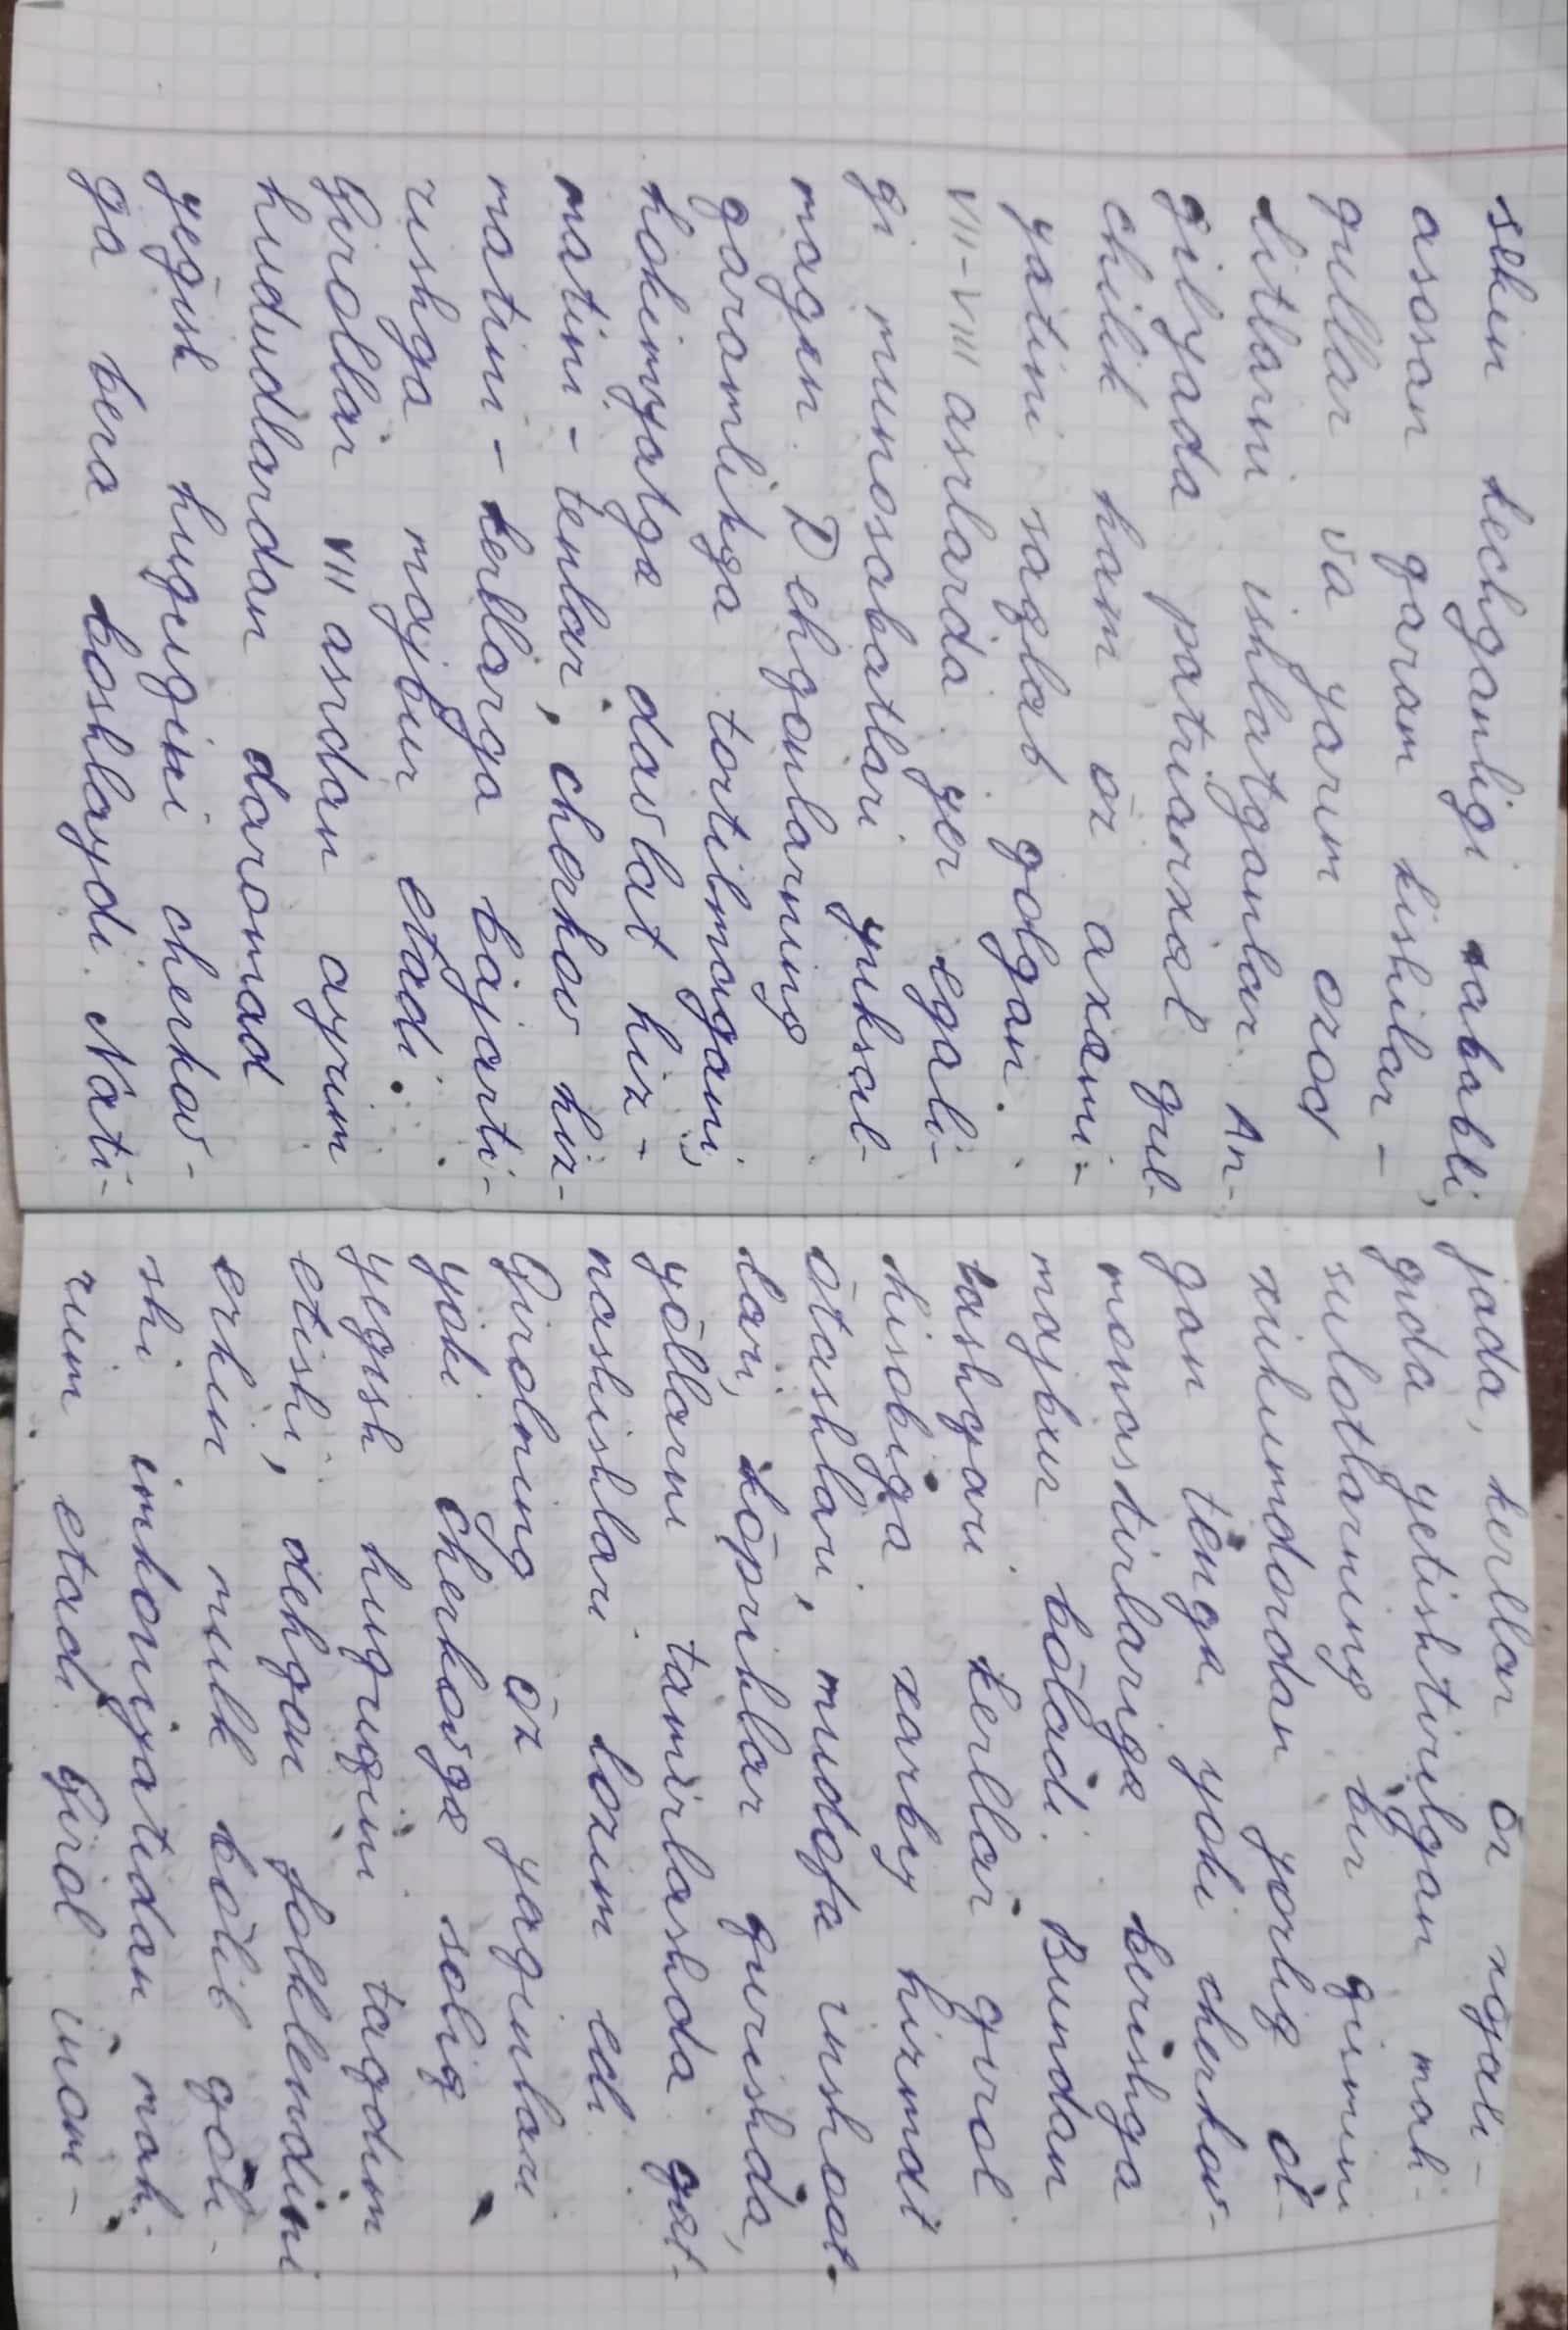 sekin kechganligi sababli,
asosan qaram kishilar -
qullar va yarim ozod
litlarni ishlatganlar. An-
gilyada patriarxal qul-
chilik ham öz axami-
yatini saqlab qolgan.
VII-VIII asrlarda yer egali-
gi munosabatlari yuksal-
magan. Dehqonlarning
qaramlikga tortilmagani,
hokimyatga davlat hiz-
matini - tenlar, cherkov hiz-
matini - kerllarga bajarti-
rishga majbur etadi.
Qirollar VII asrdan ayrim
hududlardan daromad
yeģish huquqini cherkov-
ga bera boshlaydi. Nati-
jada, kerllar öz xojali-
gida yetishtirilgan mah-
sulotlarning bir qismini
xukumdordan yorliq ol-
gan tenga yoki cherkov-
monastirlariga berishga
majbur böladi. Bundan
tashqari kerllar qirol
hisobiga xarbiy hizmat
ötashlari, mudofa inshoot-
lari, köpriklar qurishda,
yöllarni tamirlashda qat-
nashishlari lozim edi.
Qirolning öz yaqinlari
yoki cherkovga soliq
yeģish huquqini taqdim
etishi, dehqon folklendini
erkin mulk bölib qoli-
shi imkoniyatidan mah-
rum etadi. Qirol inom-